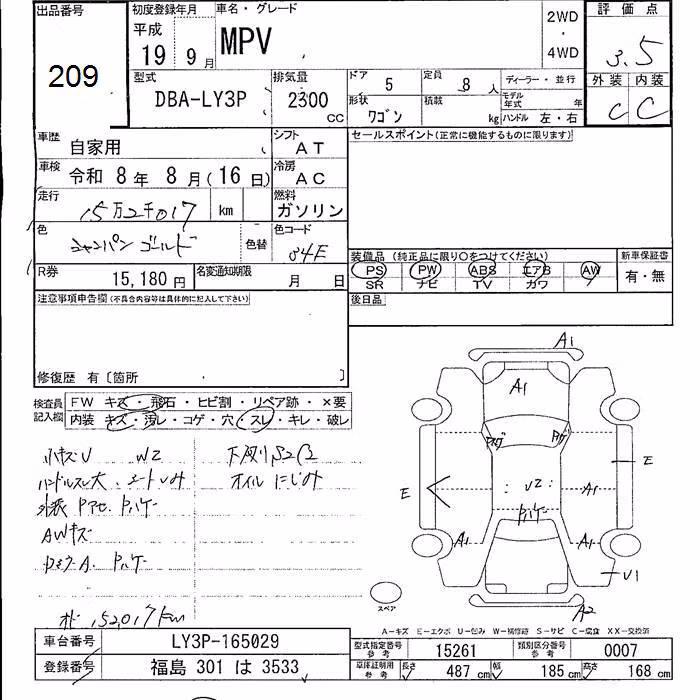 出品番号 初度登録年月 車名・グレード 2WD・4WD 評価点
209 平成 19 9月 MPV 3.5
型式 排気量 ドア 5 定員 8人 ディーラー・並行 外装 内装
DBA-LY3P 2300cc 形状 ワゴン 積載 kg モデル年式 年 ハンドル 左・右 C C
車歴 自家用 シフト AT セールスポイント(正常に機能するものに限ります)
車検 令和 8年 8月(16日) 冷房 AC
走行 15万2千017 km 燃料 ガソリン
色 シャンパンゴールド 色替 色コード 34E
装備品(純正品に限り○をつけてください) 新車保証書
PS PW ABS エアB AW 有・無
SR ナビ TV カワ
R券 15,180円 名変通知期限 月 日 後日品
注意事項申告欄(不具合内容等は具体的に記入して下さい)
修復歴 有〔箇所 〕
検査員記入欄 FW キズ・飛石・ヒビ割・リペア跡・×要
内装 キズ・汚レ・コゲ・穴・スレ・キレ・破レ
小キズU W2 下廻りSスミ
ハンドルスレ大 シートいたみ オイルにじみ
AWキズ
152,017km
A1
A1
E E
U2 A1
A1 A1
U1
A2
スペア
A-キズ E-エクボ U-凹み W-補修跡 S-サビ C-腐食 XX-交換済
車台番号 LY3P-165029 型式指定番号参考 15261 類別区分番号参考 0007
登録番号 福島 301 は 3533 車庫証明用参考 長さ 487cm 幅 185cm 高さ 168cm